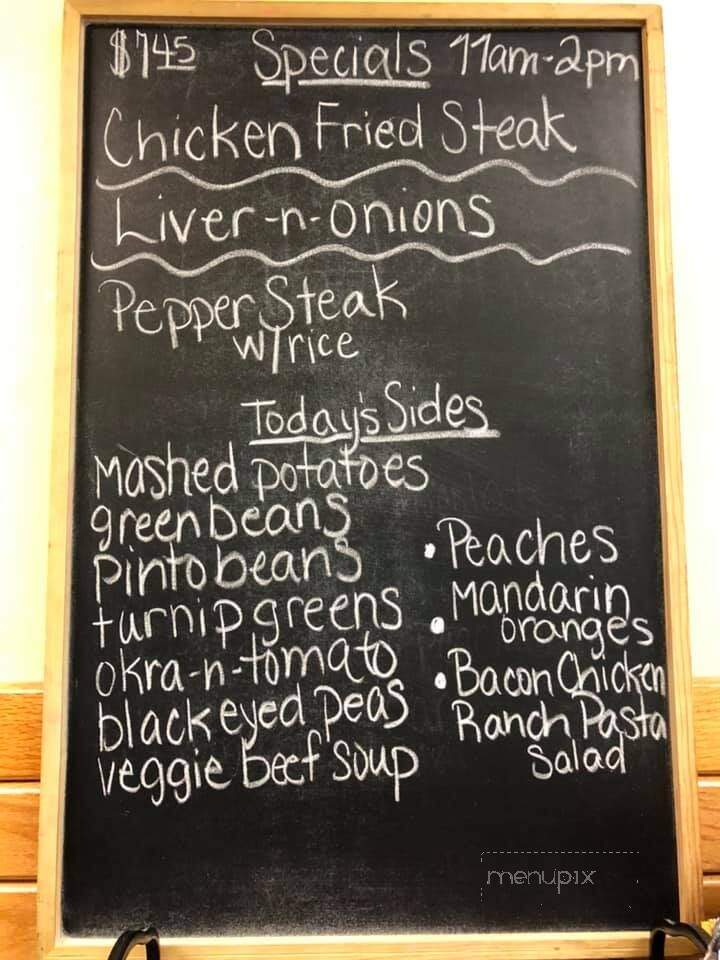 $7.45 Specials 11am-2pm
Chicken Fried Steak
Liver-n-onions
Pepper Steak
w/rice
Today's Sides
mashed potatoes
green beans
pinto beans
turnip greens
okra-n-tomato
blackeyed peas
veggie beef soup
• Peaches
• Mandarin
oranges
• Bacon Chicken
Ranch Pasta
Salad
menupix